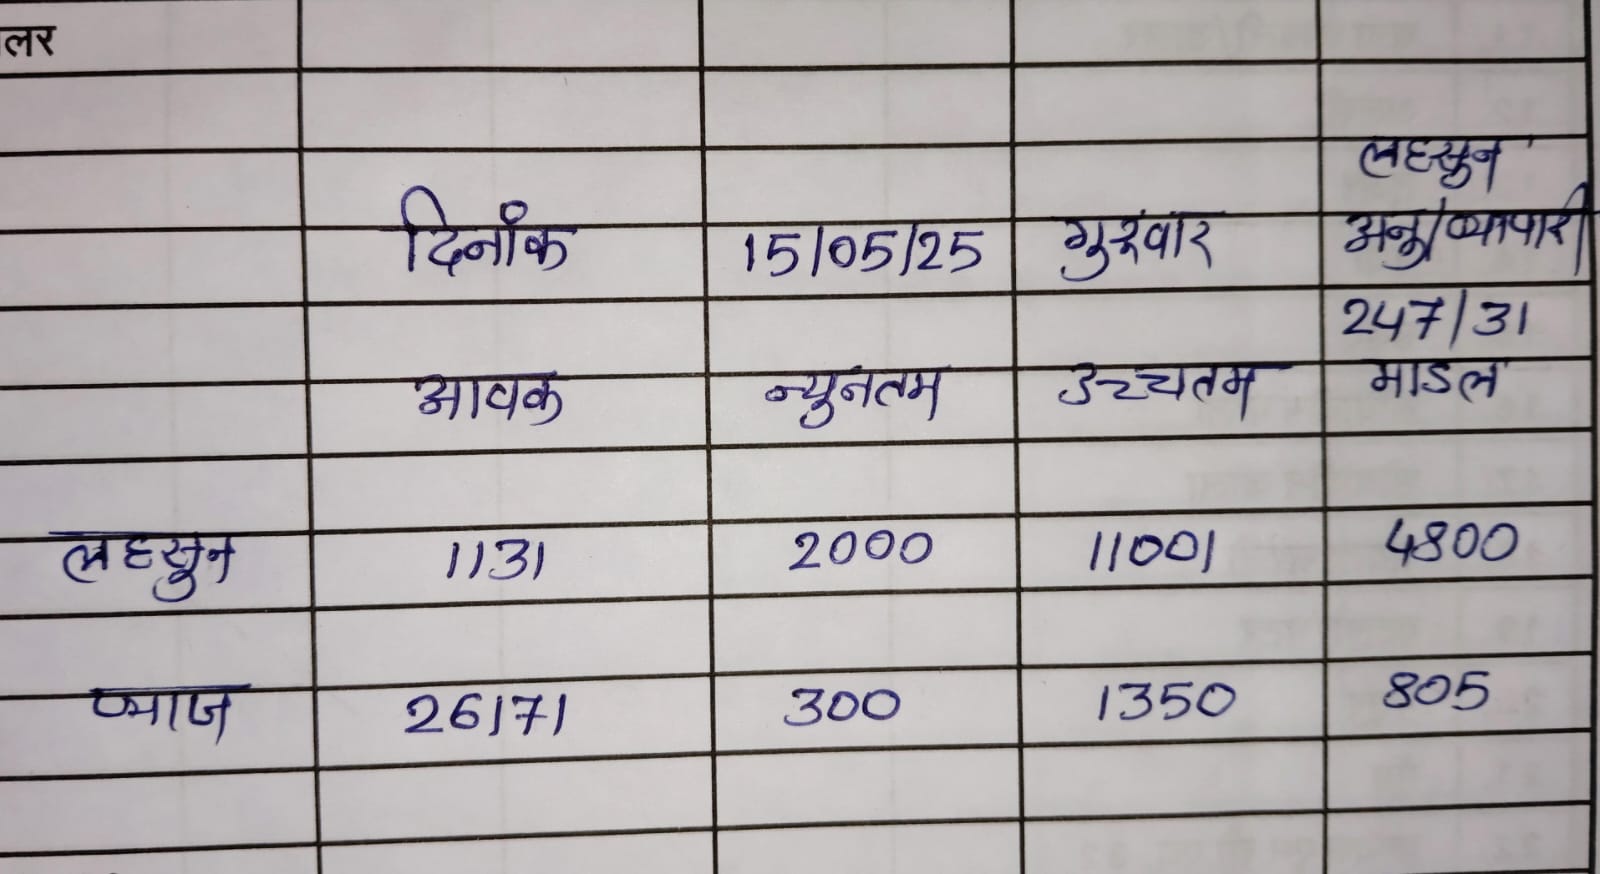 लर
लहसुन
दिनांक 15/05/25 गुरुवार अनु/व्यापारी
247/31
आवक न्युनतम उच्चतम माडल
लहसुन 1131 2000 11001 4800
प्याज 26171 300 1350 805